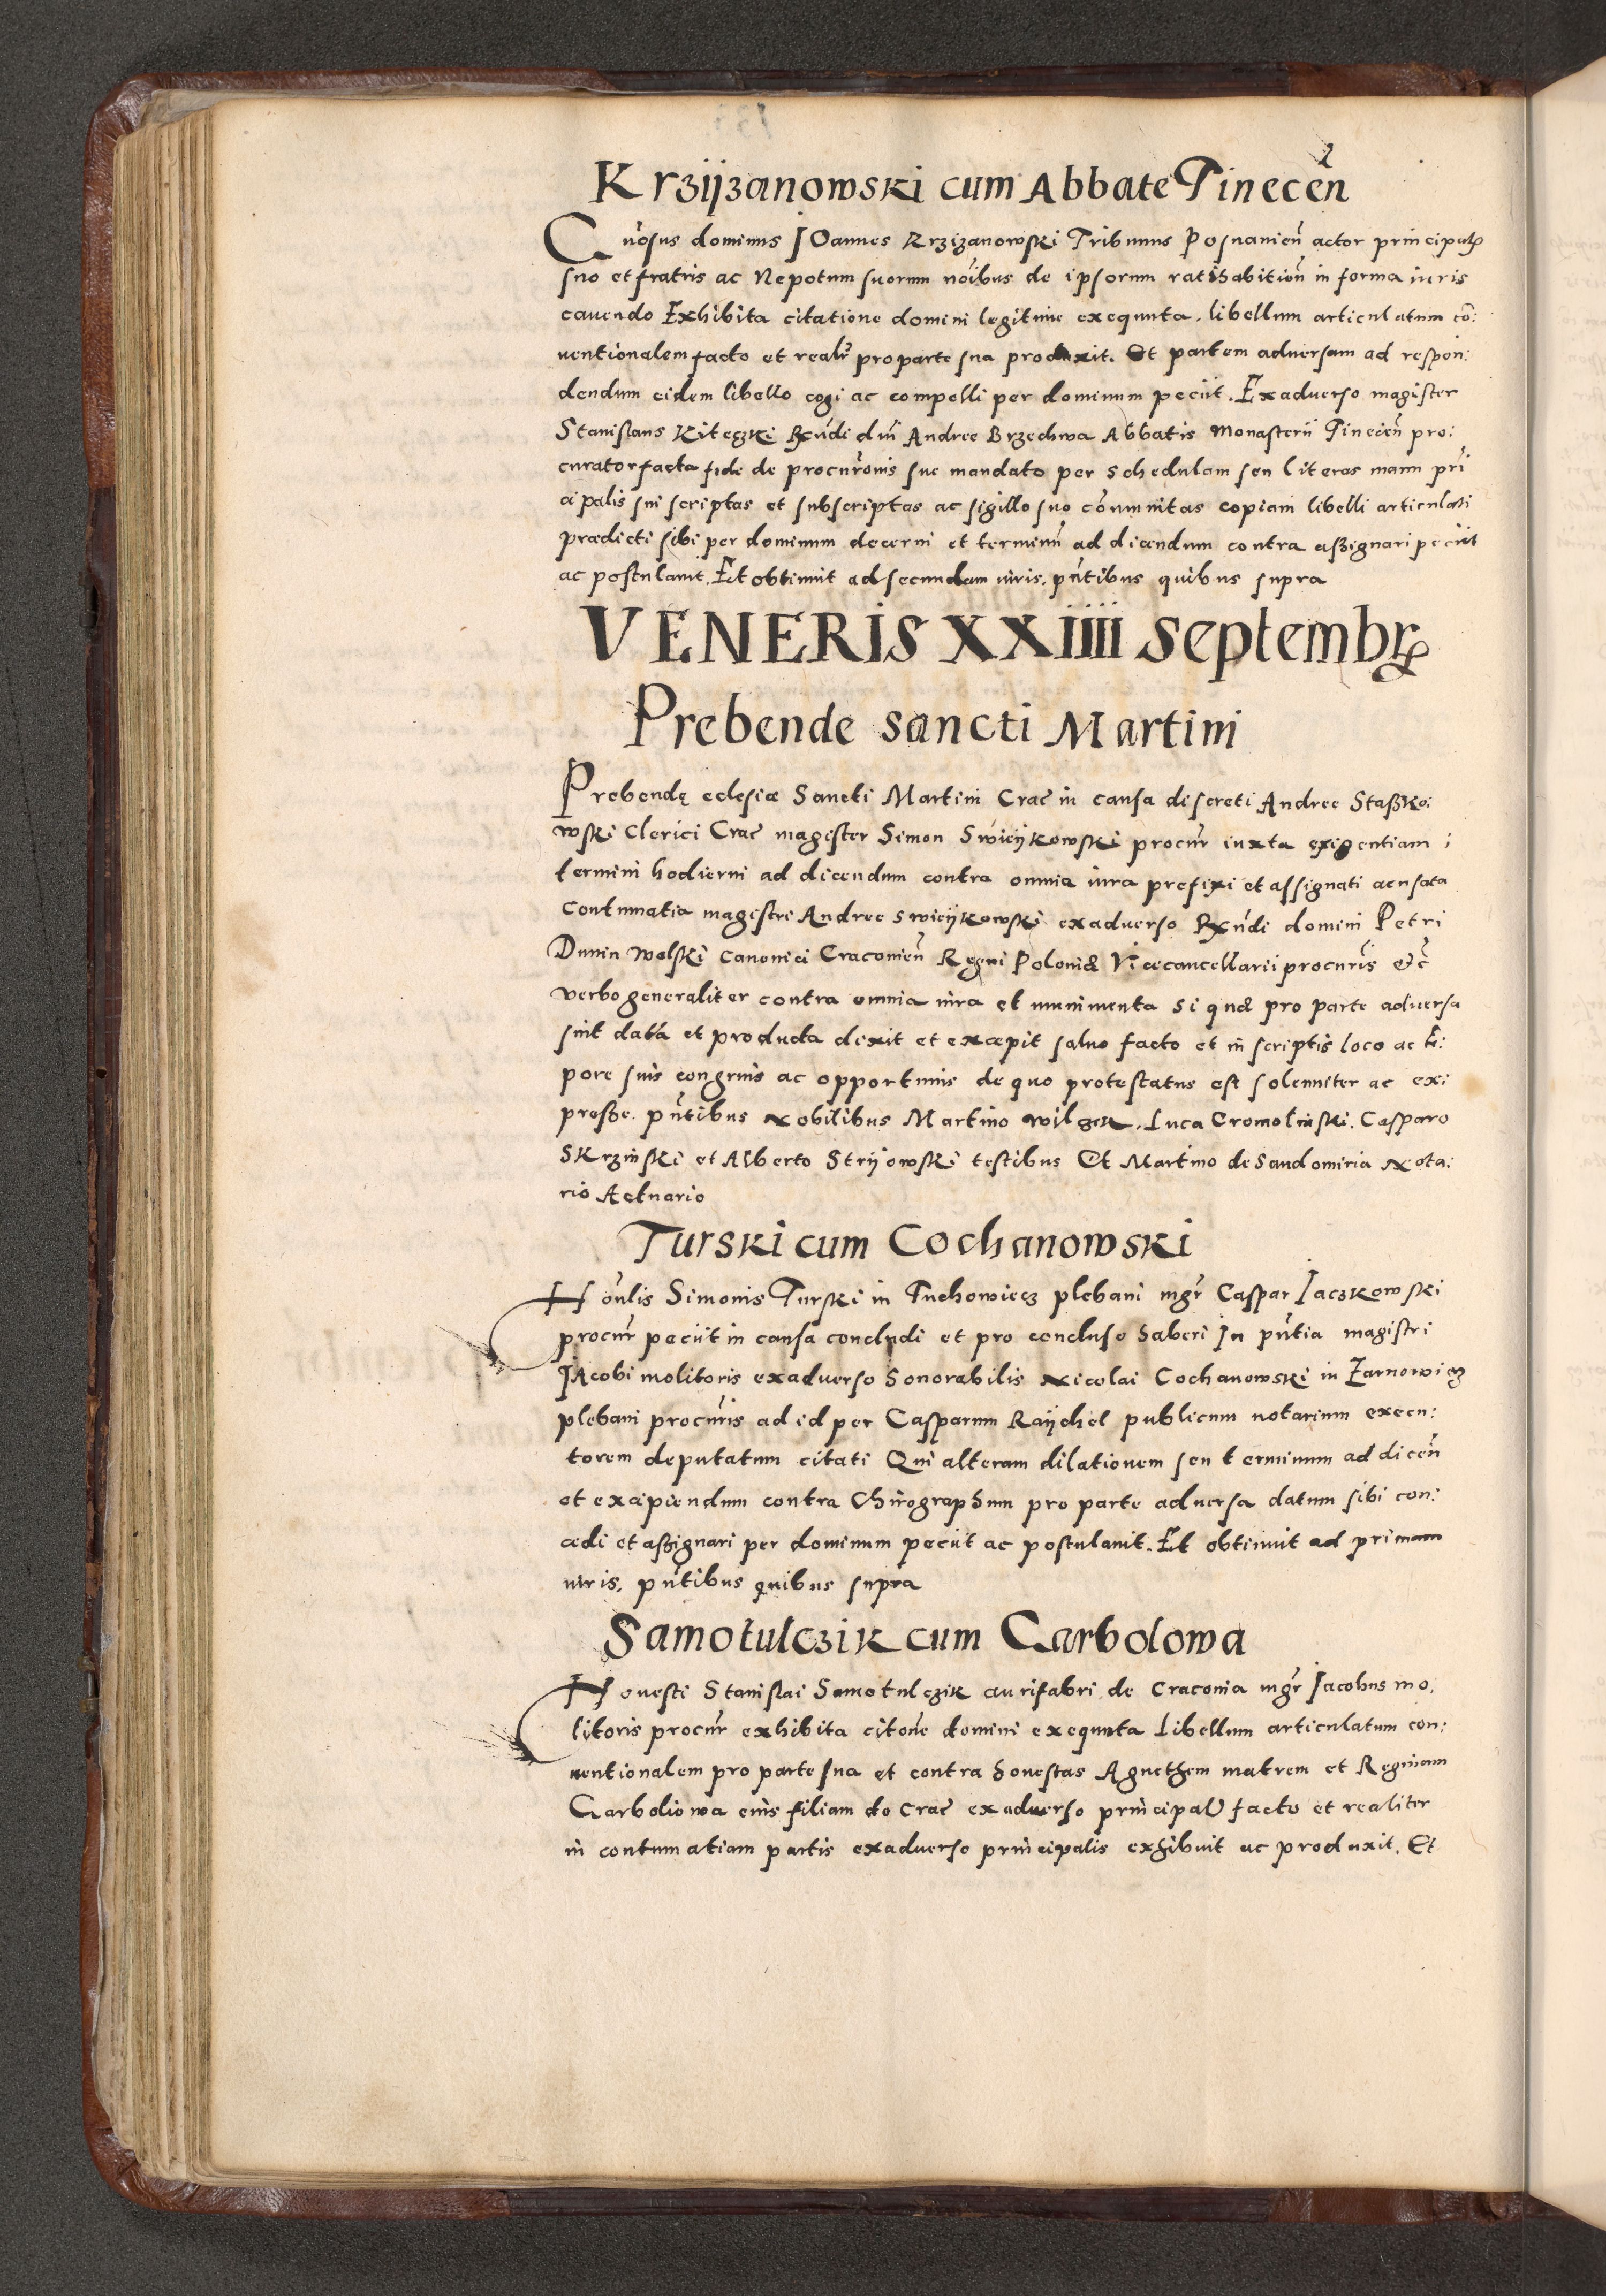 Krzijzanowski cum Abbate Tinecen̄
Gn̄osus dominus Ioannes Krzizanowski Tribunus Posnanien̄ actor principalis
suo et fratris ac Nepotum suorum nōibus de ipsorum ratihabition̄ in forma iuris
cauendo Exhibita citatione domini legitime exequuta. libellum articulatum cō:
uentionalem facto et realr̄ pro parte sua produxit. Et partem aduersam ad respon:
dendum eidem libello cogi ac compelli per dominum peciit. Exaduerso magister
Stanislaus Kiteczki Rn̄di dn̄i Andree Brzechwa Abbatis Monasterii Tinecien̄ pro:
curator facta fide de procurōnis sue mandato per schedulam seu literas manu prī
cipalis sui scriptas et subscriptas ac sigillo suo cōmunitas copiam libelli articulati
prædicti sibi per dominum decerni et terminū ad dicendum contra aßignari peciit
ac postulauit. Et obtinuit ad secundam iuris. pn̄tibus quibus supra
VENERIS XXIIII Septembris
Prebende sancti Martini
Prebendę eclesiæ Sancti Martini Crac̄ in causa discreti Andree Staßko:
wski Clerici Crac̄ magister Simon Swieijkowski procur̄ iuxta exigentiam :
termini hodierni ad dicendum contra omnia iura prefixi et assignati acusata
Contumatia magistri Andree swieijkowski exaduerso Rn̄di domini Petri
Dunin Wolski Canonici Cracouien̄ Regni Poloniæ Vicecancellarii procuris̄ &c̄
verbo generaliter contra omnia iura et munimenta si quæ pro parte aduersa
sint data et producta dixit et excæpit saluo facto et in scriptis loco ac tē:
pore suis congruis ac opportunis de quo protestatus est solenniter ac ex:
preße. pn̄tibus Nobilibus Martino wilzek. Luca Cromolinski. Casparo
Skrzinski et Alberto Strijowski testibus Et Martino de Sandomiria Nota:
rio Actuario
Turski cum Cochanowski
Hon̄lis Simonis Turski in Tuchowiecz plebani mgr̄ Caspar Iaczkowski
procur̄ peciit in causa concludi et pro concluso haberi In pn̄tia magistri
IAcobi molitoris exaduerso honorabilis Nicolai Cochanowski in Zarnowiecz
plebani procuris̄ ad id per Casparum Raijchel publicum notarium execu:
torem deputatum citati Qui alteram dilationem seu terminum ad dicen̄
et excipiendum contra Chirographum pro parte aduersa datum sibi con:
cædi et aßignari per dominum peciit ac postulauit. Et obtinuit ad primam
iuris. pn̄tibus quibus supra
Samotulczik cum Carbolowa
Honesti Stanislai Samotulczik aurifabri de Cracouia mgr̄ Iacobus mo:
litoris procur̄ exhibita citōne domini exequuta Libellum articulatum con:
uentionalem pro parte sua et contra honestas Agnethem matrem et Reginam
Carboliowa eius filiam de Crac̄ exaduerso principal̄ facto et realiter
in contumatiam partis exaduerso principalis exhibuit ac produxit. Et